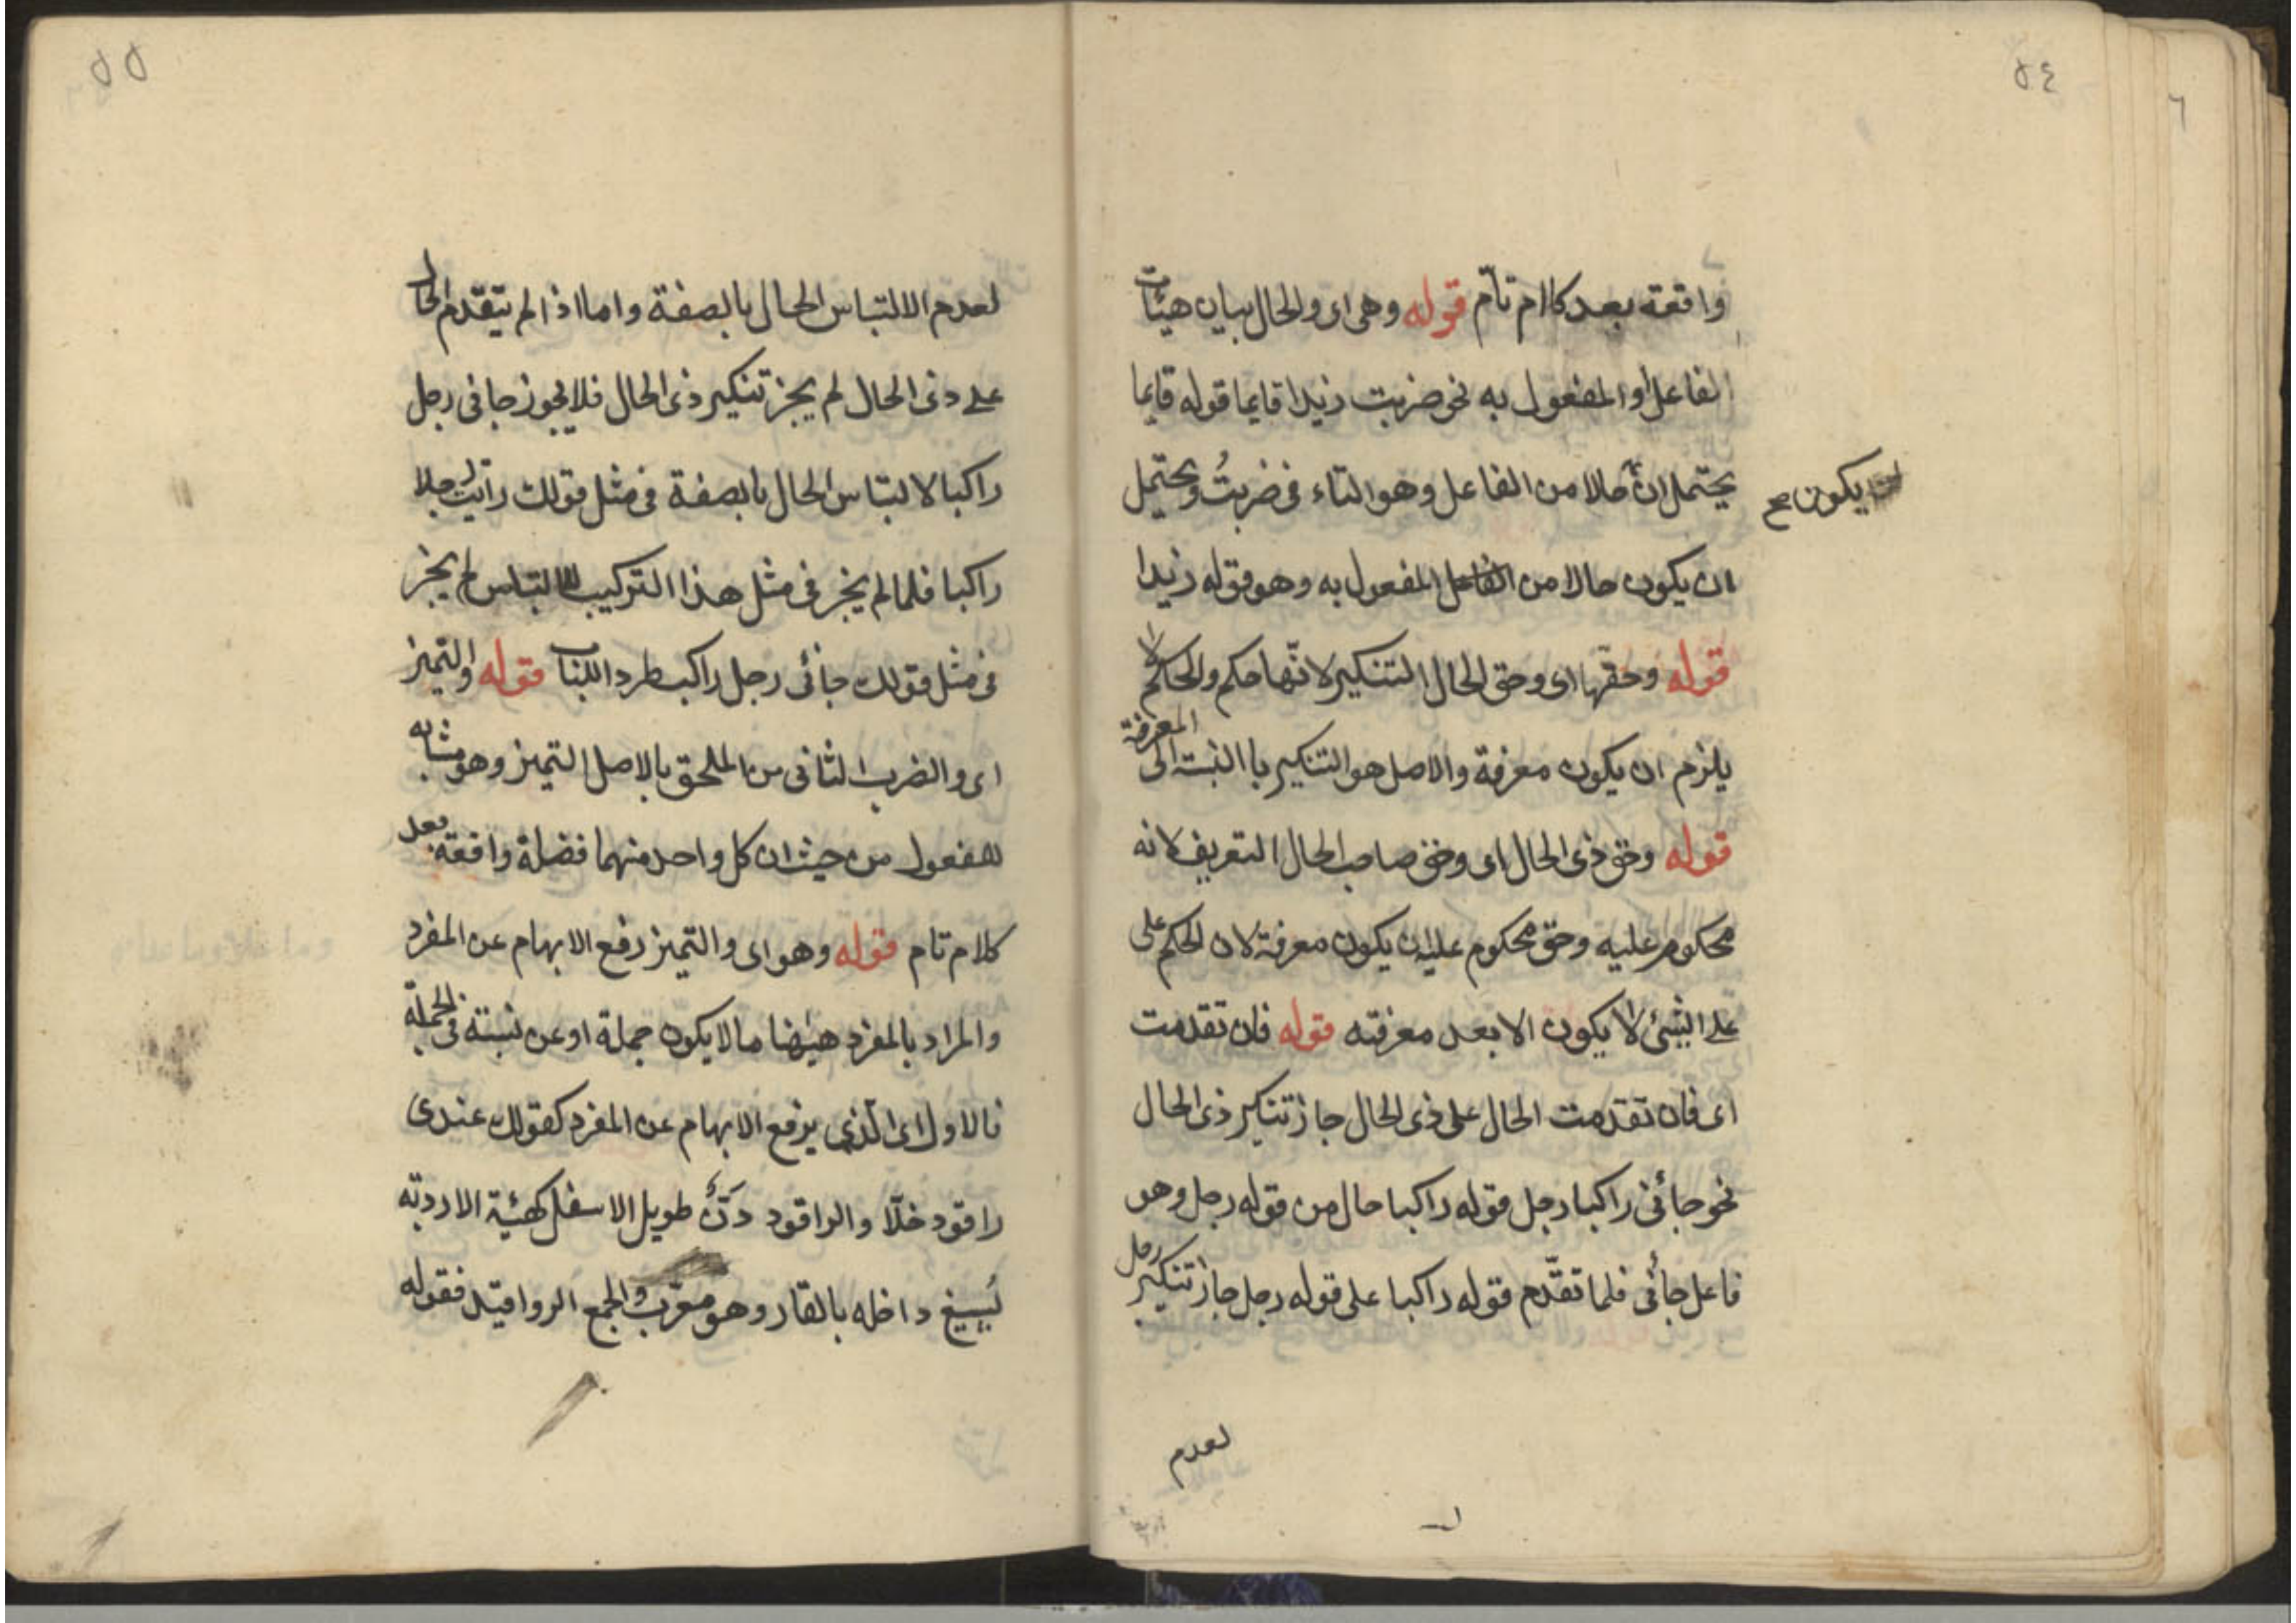 ٥٤
٦
واقعة بعد كلام تام قوله وهى اى والحال بيان هيئات
الفاعل او المفعول به نحو ضربت زيدا قايما قوله قايما
يحتمل ان حالا من الفاعل وهو التاء فى ضربتُ ويحتمل
يكون صح
ان يكون حالا من المفعول به وهو قوله زيدا
قوله وحقها اى وحق الحال التنكير لانّها حكم والحكم لا
يلزم ان يكون معرفة والاصل هو التنكير باالنسبة الى المعرفة
قوله وحق ذى الحال اى وحق صاحب الحال التعريف لانه
محكوم عليه وحق محكوم عليه ان يكون معرفة لان الحكم على
على الشئ لا يكون الا بعد معرفته قوله فان تقدمت
اى فان تقدمت الحال على ذى الحال جاز تنكير ذى الحال
نحو جائنى راكبا رجل قوله راكبا حال من قوله رجل وهو
فاعل جائنى فلما تقدّم قوله راكبا على قوله رجل جاز تنكير رجل
لعدم
٥٥
لعدم الالتباس الحال بالصفة واما اذا لم يتقدم الحال
على ذى الحال لم يجز تنكير ذى الحال فلا يجوز جانى رجل
راكبا لالتباس الحال بالصفة فى مثل قولك رايت رجلا
راكبا فلما لم يجز فى مثل هذا التركيب للالتباس لم يجز
فى مثل قولك جائنى رجل راكب طردا للباب قوله والتميز
اى والضرب الثانى من الملحق بالاصل التميز وهو مشابه
للمفعول من حيث ان كل واحد منهما فضلة واقعة بعد
كلام تام قوله وهو اى والتميز رفع الابهام عن المفرد
والمراد بالمفرد هيهنا ما لا يكون جملة او عن نسبته فى الجملة
فالاول اى الّذى يرفع الابهام عن المفرد كقولك عندى
راقود خلّا والراقود دَنٌّ طويل الاسفل كهيئة الاردبّه
يُسيع داخله بالقار وهو معرّب والجمع الرواقيد فقوله